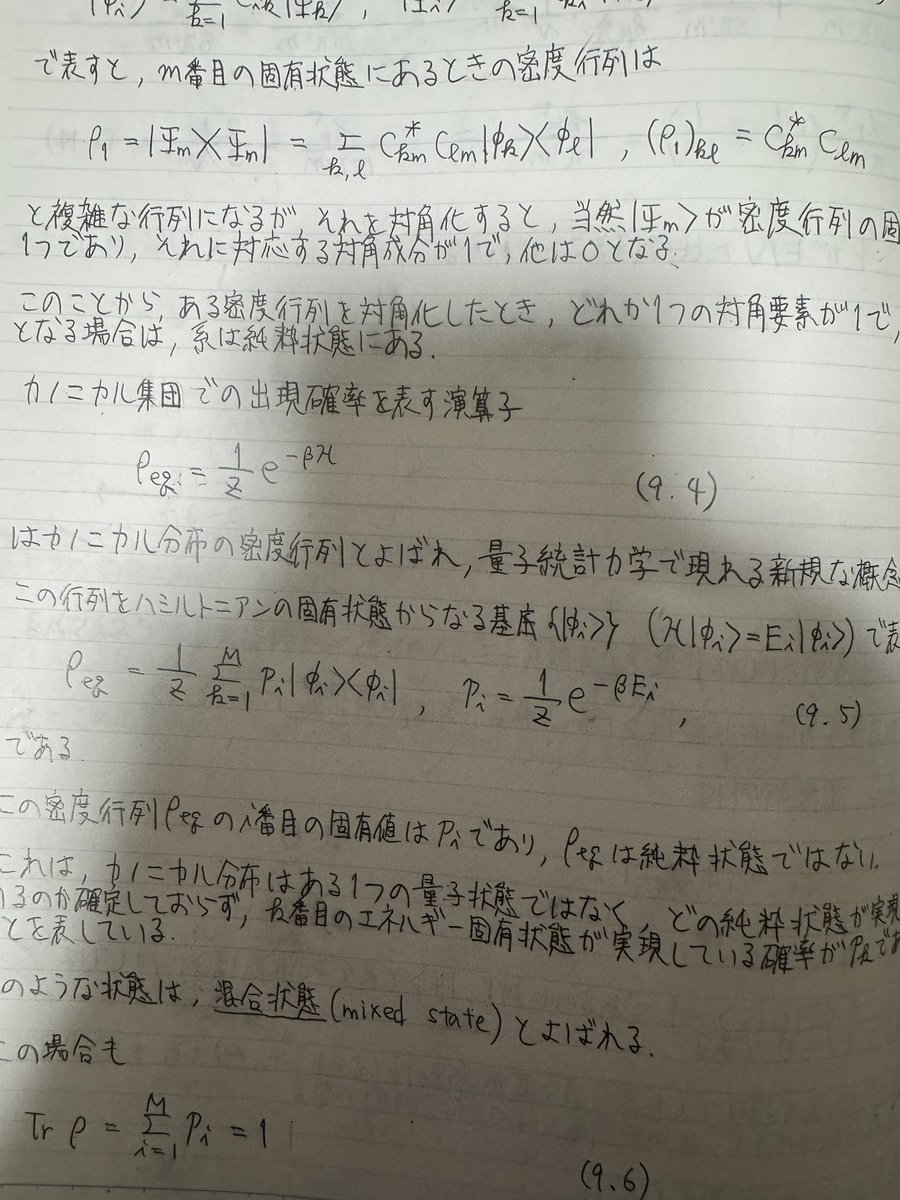 で表すと, m番目の固有状態にあるときの密度行列は
ρ₁ = |Ψm><Ψm| = Σ_{k,l} C*_{km} C_{lm} |φk><φl| , (ρ₁)_{kl} = C*_{km} C_{lm}
と複雑な行列になるが, それを対角化すると, 当然|Ψm>が密度行列の固
1つであり, それに対応する対角成分が1で, 他は0となる.
このことから, ある密度行列を対角化したとき, どれか1つの対角要素が1で,
となる場合は, 系は純粋状態にある.
カノニカル集団での出現確率を表す演算子
ρeq = 1/Z e^{-βH} (9.4)
はカノニカル分布の密度行列とよばれ, 量子統計力学で現れる新規な概念
この行列をハミルトニアンの固有状態からなる基底{|φi>} (H|φi>=Ei|φi>)で表
ρeq = 1/Z Σ_{k=1}^{M} pi|φi><φi| , pi = 1/Z e^{-βEi} , (9.5)
である.
この密度行列ρeqのi番目の固有値はpiであり, ρeqは純粋状態ではない.
これは, カノニカル分布はある1つの量子状態ではなく, どの純粋状態が実現
いるのか確定しておらず, k番目のエネルギー固有状態が実現している確率がpkであ
とを表している.
のような状態は, 混合状態(mixed state)とよばれる.
この場合も
Tr ρ = Σ_{i=1}^{M} pi = 1
(9.6)